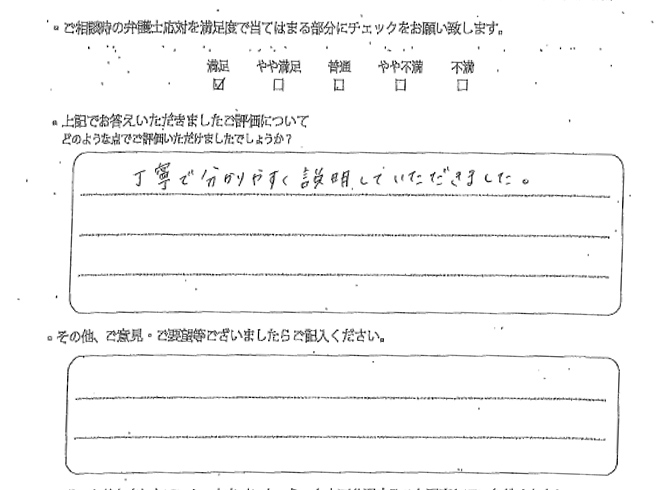 ご相談時の弁護士応対を満足度で当てはまる部分にチェックをお願い致します。
満足 やや満足 普通 やや不満 不満
☑ □ □ □ □
上記でお答えいただきましたご評価について
どのような点でご評価いただけましたでしょうか？
丁寧で分かりやすく説明していただきました。
その他、ご意見・ご要望等ございましたらご記入ください。